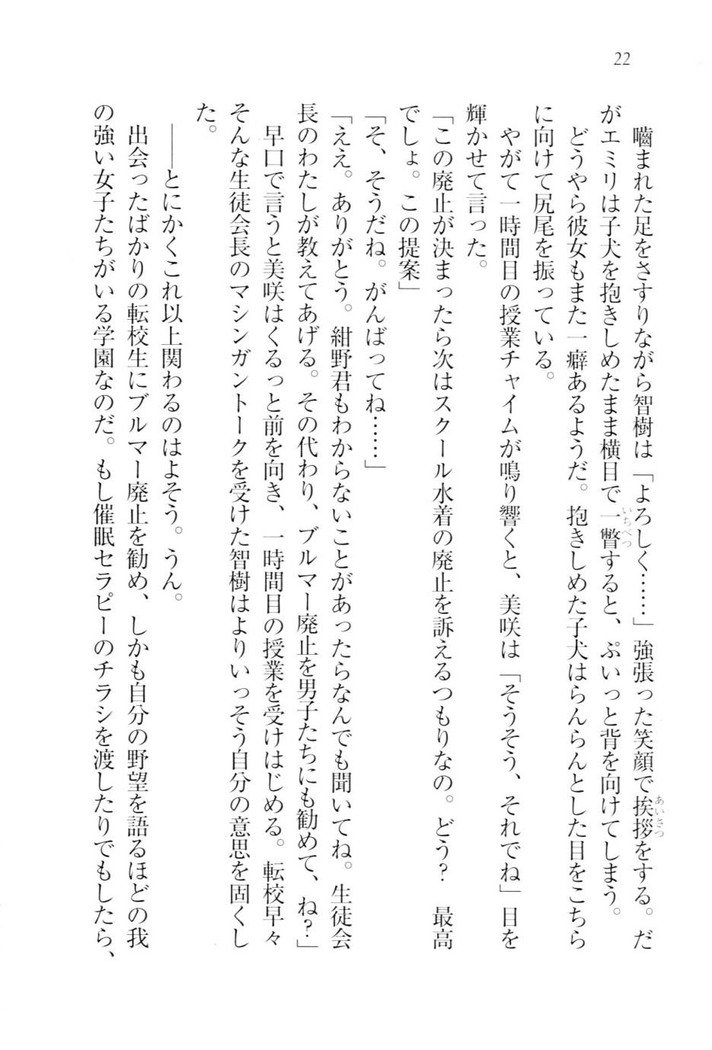 22
嚙まれた足をさすりながら智樹は「よろしく……」強張った笑顔で挨拶をする。だ
がエミリは子犬を抱きしめたまま横目で一瞥すると、ぷいっと背を向けてしまう。
どうやら彼女もまた一癖あるようだ。抱きしめた子犬はらんらんとした目をこちら
に向けて尻尾を振っている。
やがて一時間目の授業チャイムが鳴り響くと、美咲は「そうそう、それでね」目を
輝かせて言った。
「この廃止が決まったら次はスクール水着の廃止を訴えるつもりなの。どう？　最高
でしょ。この提案」
「そ、そうだね。がんばってね……」
「ええ。ありがとう。紺野君もわからないことがあったらなんでも聞いてね。生徒会
長のわたしが教えてあげる。その代わり、ブルマー廃止を男子たちにも勧めて、ね？」
早口で言うと美咲はくるっと前を向き、一時間目の授業を受けはじめる。転校早々
そんな生徒会長のマシンガントークを受けた智樹はよりいっそう自分の意思を固くし
た。
――とにかくこれ以上関わるのはよそう。うん。
出会ったばかりの転校生にブルマー廃止を勧め、しかも自分の野望を語るほどの我
の強い女子たちがいる学園なのだ。もし催眠セラピーのチラシを渡したりでもしたら、